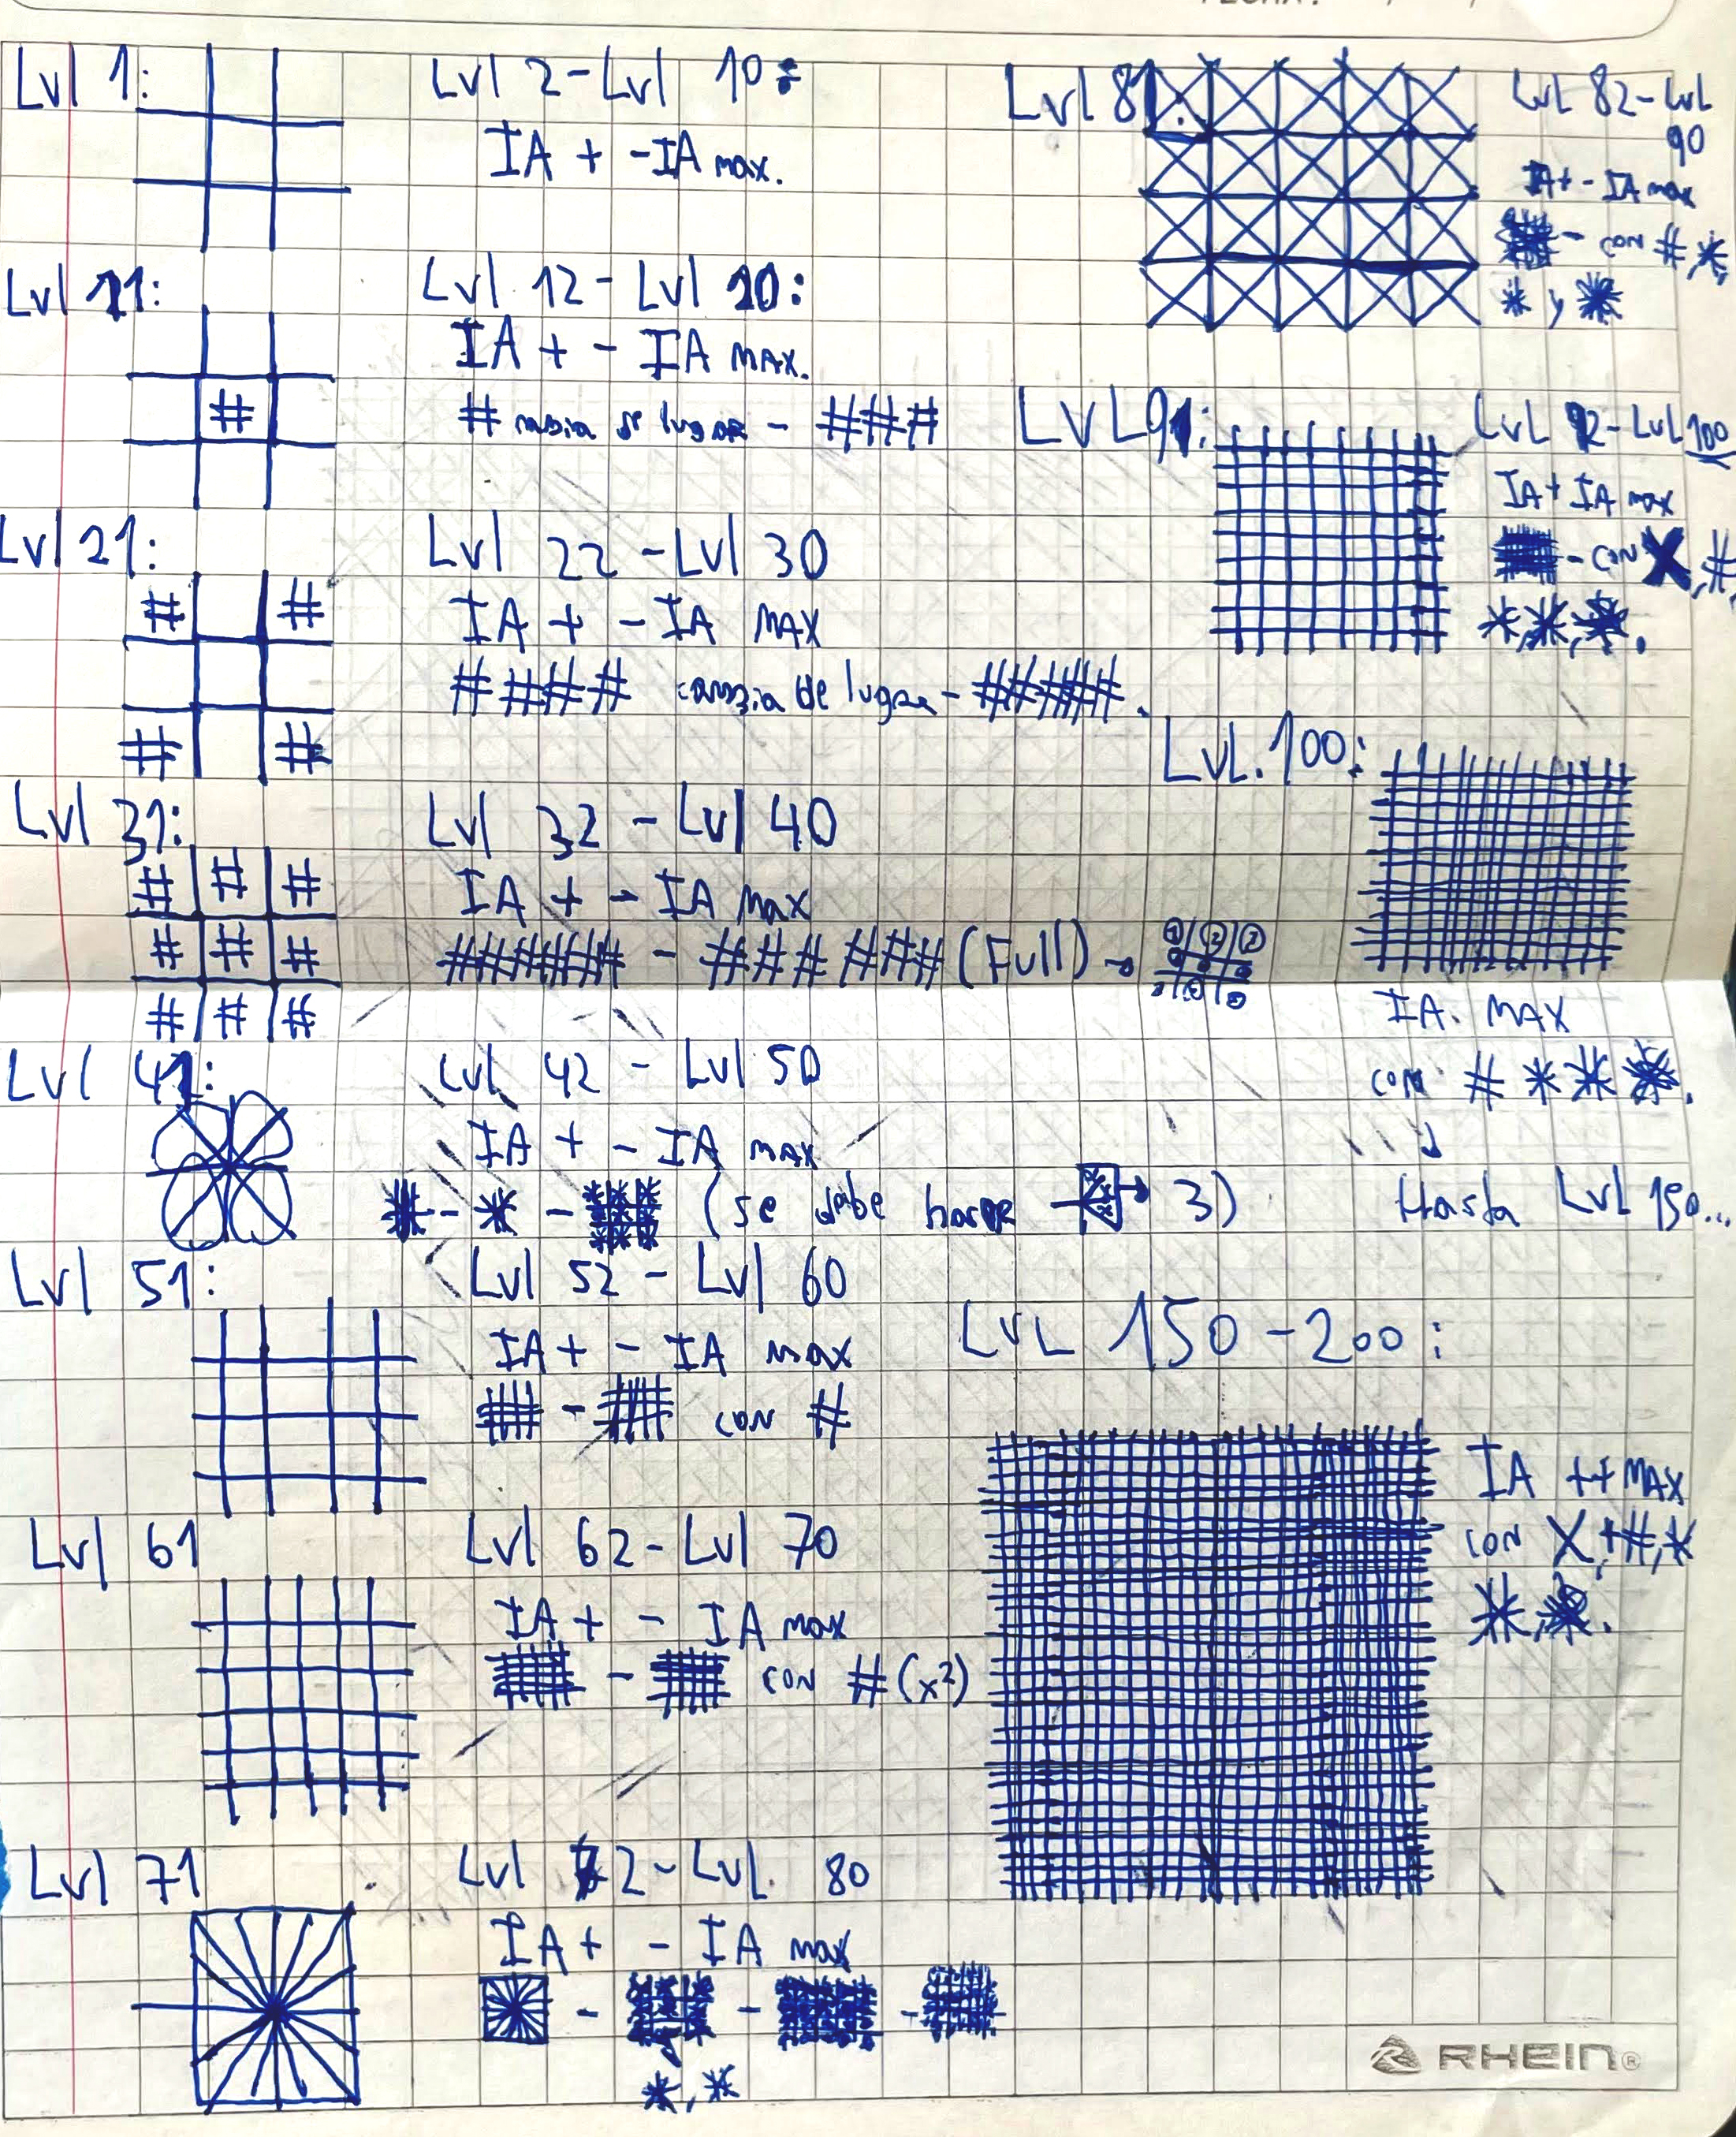 FECHA:
Lvl 1:
Lvl 2 - Lvl 10:
IA + - IA max.
Lvl 11:
#
Lvl 12 - Lvl 20:
IA + - IA MAX.
# de lugar - ###
Lvl 21:
# #
# #
Lvl 22 - Lvl 30
IA + - IA MAX
#### cambia de lugar - #####.
Lvl 31:
# # #
# # #
# # #
Lvl 32 - Lvl 40
IA + - IA Max
###### - ### ### (Full) →
Lvl 41:
Lvl 42 - Lvl 50
IA + - IA max
(se debe hacer 3)
Lvl 51:
Lvl 52 - Lvl 60
IA + - IA max
- con #
Lvl 61
Lvl 62 - Lvl 70
IA + - IA max
- con # (x2)
Lvl 71
Lvl 72 - LvL. 80
IA + - IA max
Lvl 81:
LvL 82 - LvL
90
IA + - IA max
- con #, *,
* y *
LVL 91:
LvL 92 - LvL 100
IA + IA max
- con X, #,
*, *, *.
LvL. 100:
IA. MAX
con # * * *.
Hasta LvL 150...
LvL 150 - 200:
IA ++ MAX
con X, #, *
*, *.
RHEIN®